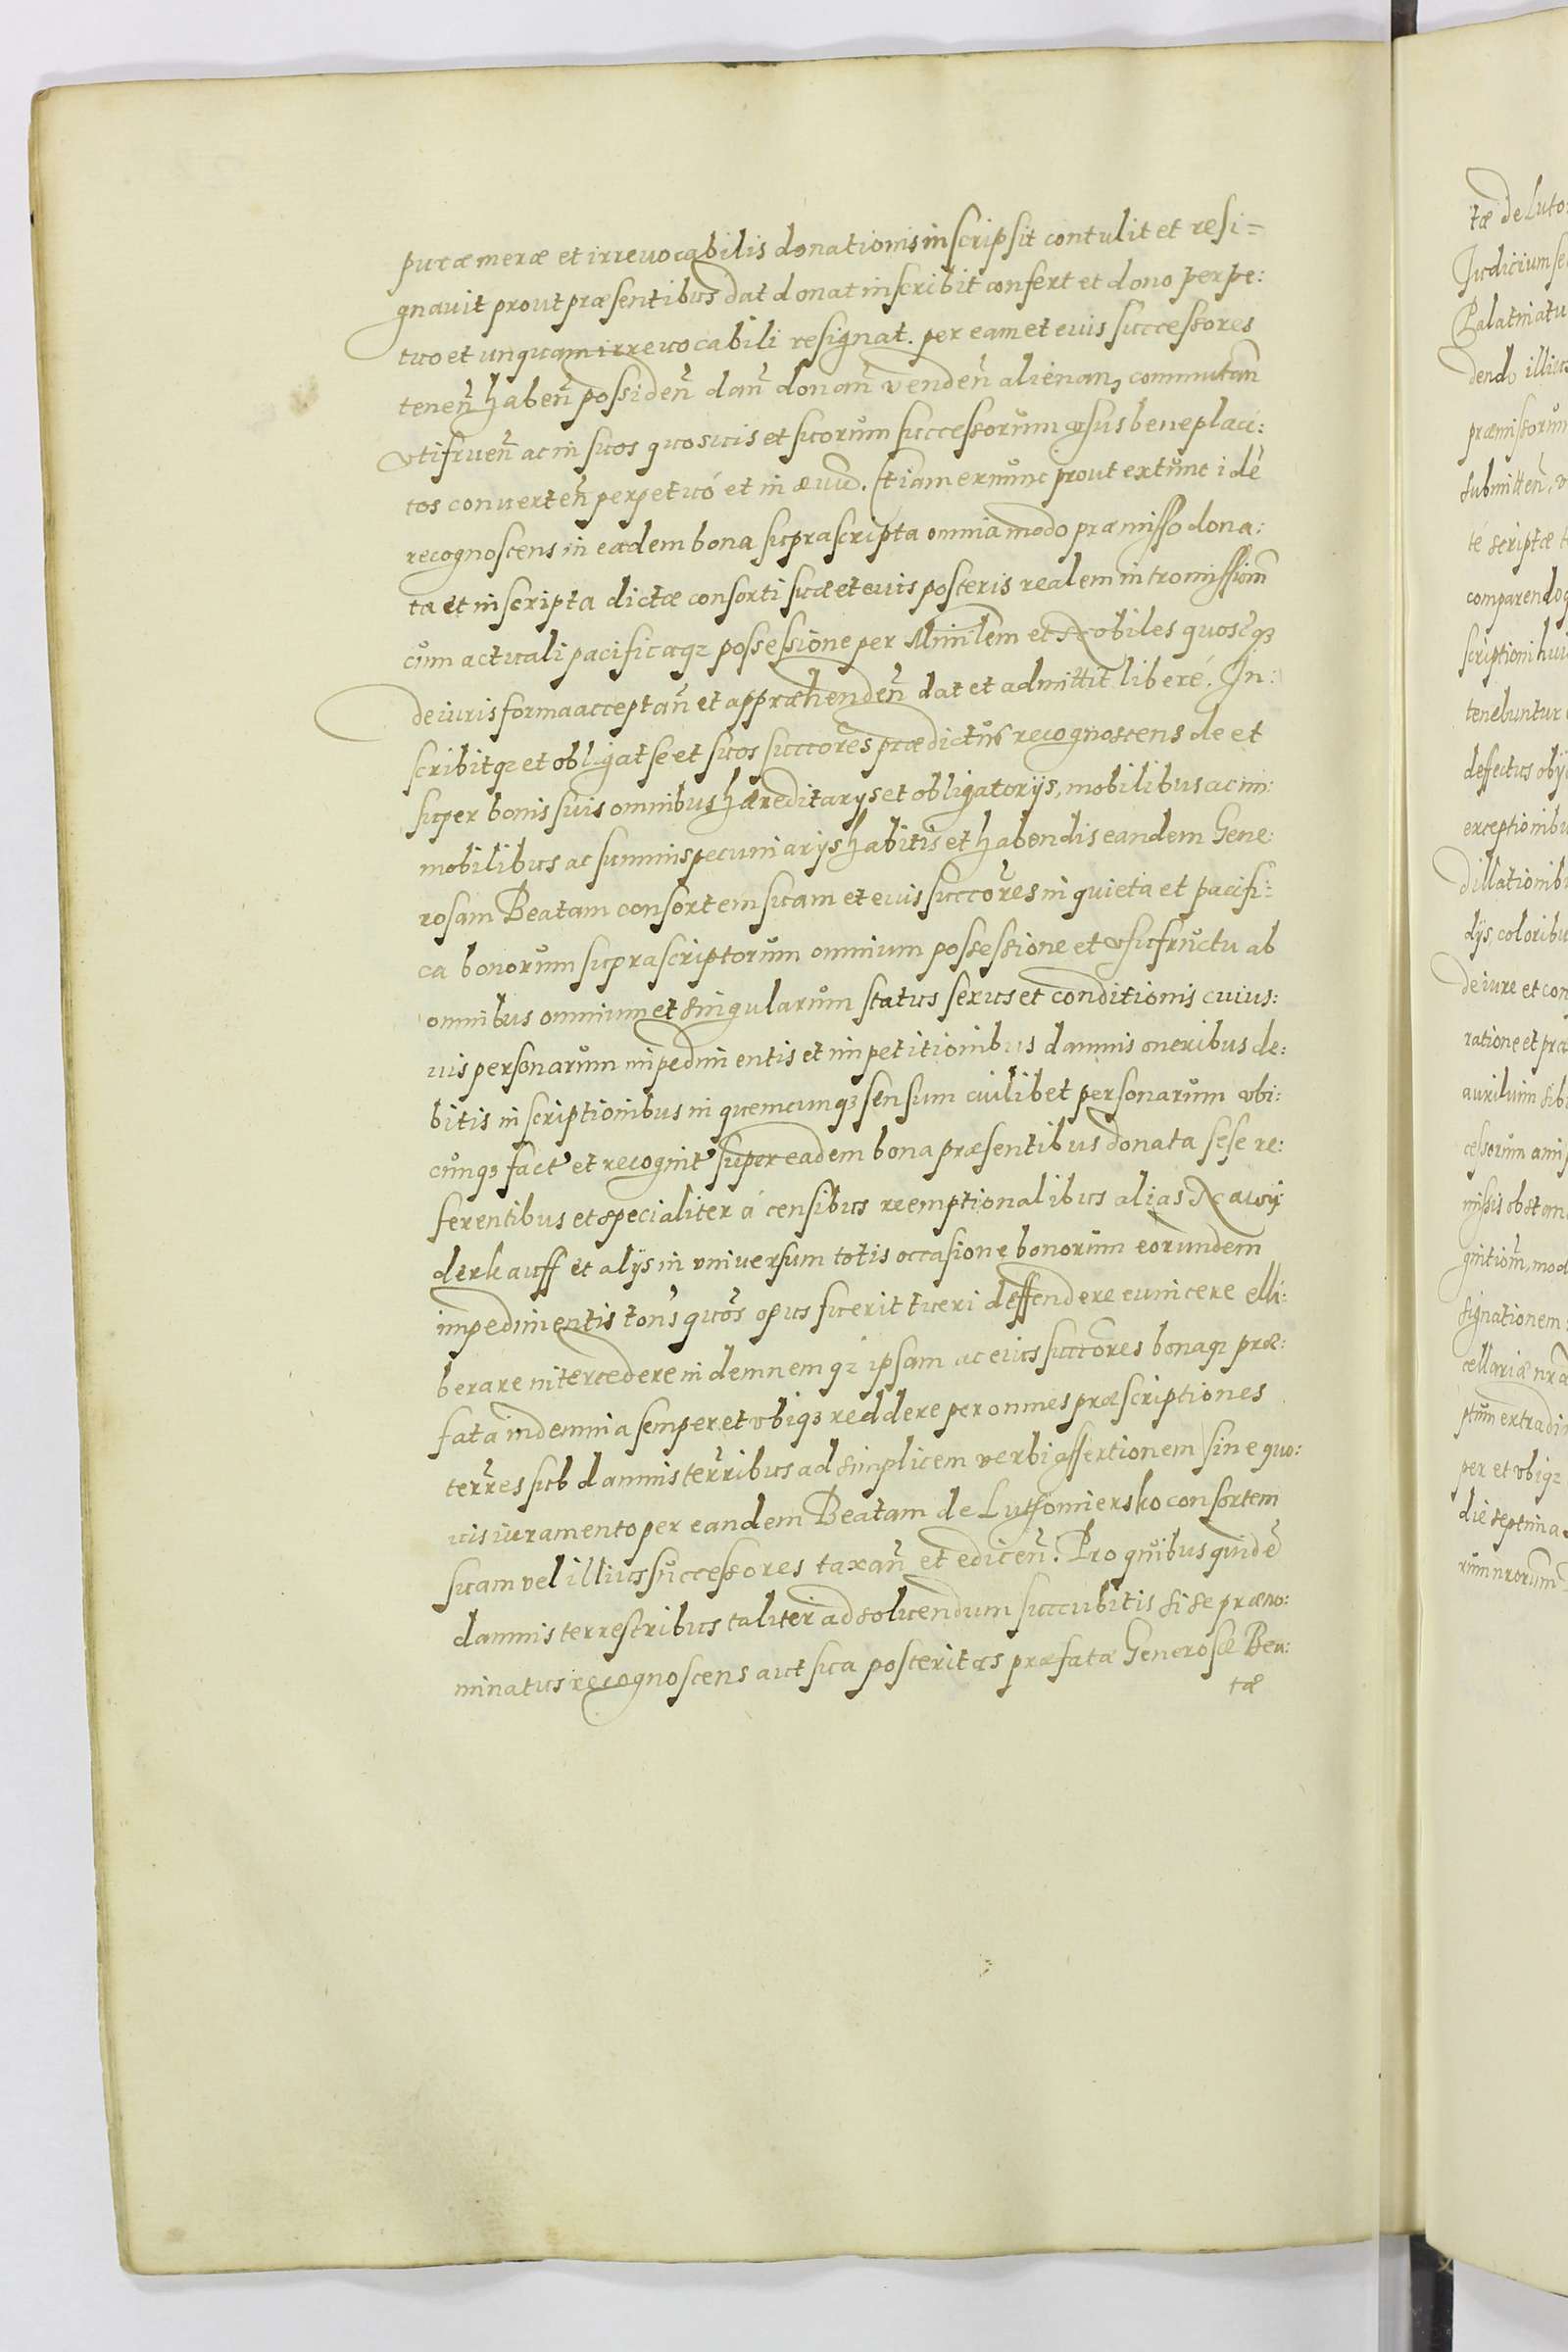 puræ meræ et irreuocabilis donationis inscripsit contulit et resi=
gnauit prout præsentibus dat donat inscribit confert et dono perpe:
tuo et unquam irreuocabili resignat. per eam et euis successores
tenen̄ haben̄ possiden̄ dan̄ donan̄ venden̄ alienan, commutan̄
vtifruen̄ ac in suos quosuis et suorum successorum vsus beneplaci:
tos conuerten̄ perpetuó et in æuū. Etiam exnunc prout extunc idē
recognoscens in eadem bona suprascripta omnia modo præmisso dona:
ta et inscripta dictæ consorti suæ et euis posteris realem intromissiom̄
cum actuali pacificaqz possessione per Minlem et Nobiles quoscqz
de iuris forma acceptan̄ et appræhenden̄ dat et admittit liberé. In:
scribitqz et obligat se et suos succores prædictus recognoscens de et
super bonis suis omnibus hæreditarys et obligatorijs, mobilibus ac im:
mobilibus ac summis pecuniarys habitis et habendis eandem Gene:
rosam Beatam consortem suam et euis succores in quieta et pacifi:
ca bonorum suprascriptorum omnium possessione et vsufructu ab
omnibus omnium et singularum status sexus et conditionis cuius:
uis personarum impedimentis et impetitionibus damnis oneribus de:
bitis inscriptionibus in quemcunqz sensum cuilibet personarum vbi:
cunqz fact' et recognit' super eadem bona præsentibus donata sese re:
ferentibus et specialiter á censibus reemptionalibus alias Nawy
derkauff et alijs in vniuersum totis occasione bonorum eorundem
impedimentis tons quos opus fuerit tueri deffendere euincere elli:
berare intercedere indemnemqz ipsam ac eius succores bonaqz præ:
fata indemnia semper et vbiqz reddere per omnes præscriptiones
terres sub damnis terribus ad simplicem verbi assertionem sine quo:
uis iuramento per eandem Beatam de Lutomiersko consortem
suam vel illius successores taxan̄ et edicen̄. Pro quibus quidē
damnis terrestribus taliter adsoluendum succubitis si se præno:
minatus recognoscens aut sua posteritas præfatæ Generosæ Bea:
tæ
tæ de Luto
Judicium se
Palatinatu
dendo illius
præmissorum
submitten̄, v
té scriptæ t
comparendo q
scriptioni hui
tenebuntur
deffectus obij
exceptionibu
dillationibu
dijs, coloribu
de iure et con
ratione et præ
auxilium sibi
cessorum ami
missis obstan
gnitiom̄, mod
signationem
cellariæ nræ
ptum extradi
per et vbiqz
die septima
rum nrorum